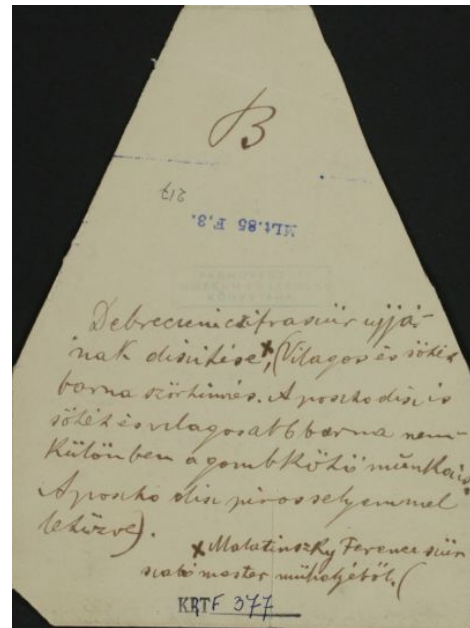 B
217
MLt.85 F,3.
Debreceni cifraszűr ujjá-
nak díszítése,x (Világos és sötét
barna szőrhímzés. A poszto disz is
sötét és világosabb barna nem-
különben a gombkötő munka is.
A poszto disz piros selyemmel
letűzve).
x Malatinszky Ferenc szűr
szabó mester műhelyéből. (
KRTF 377